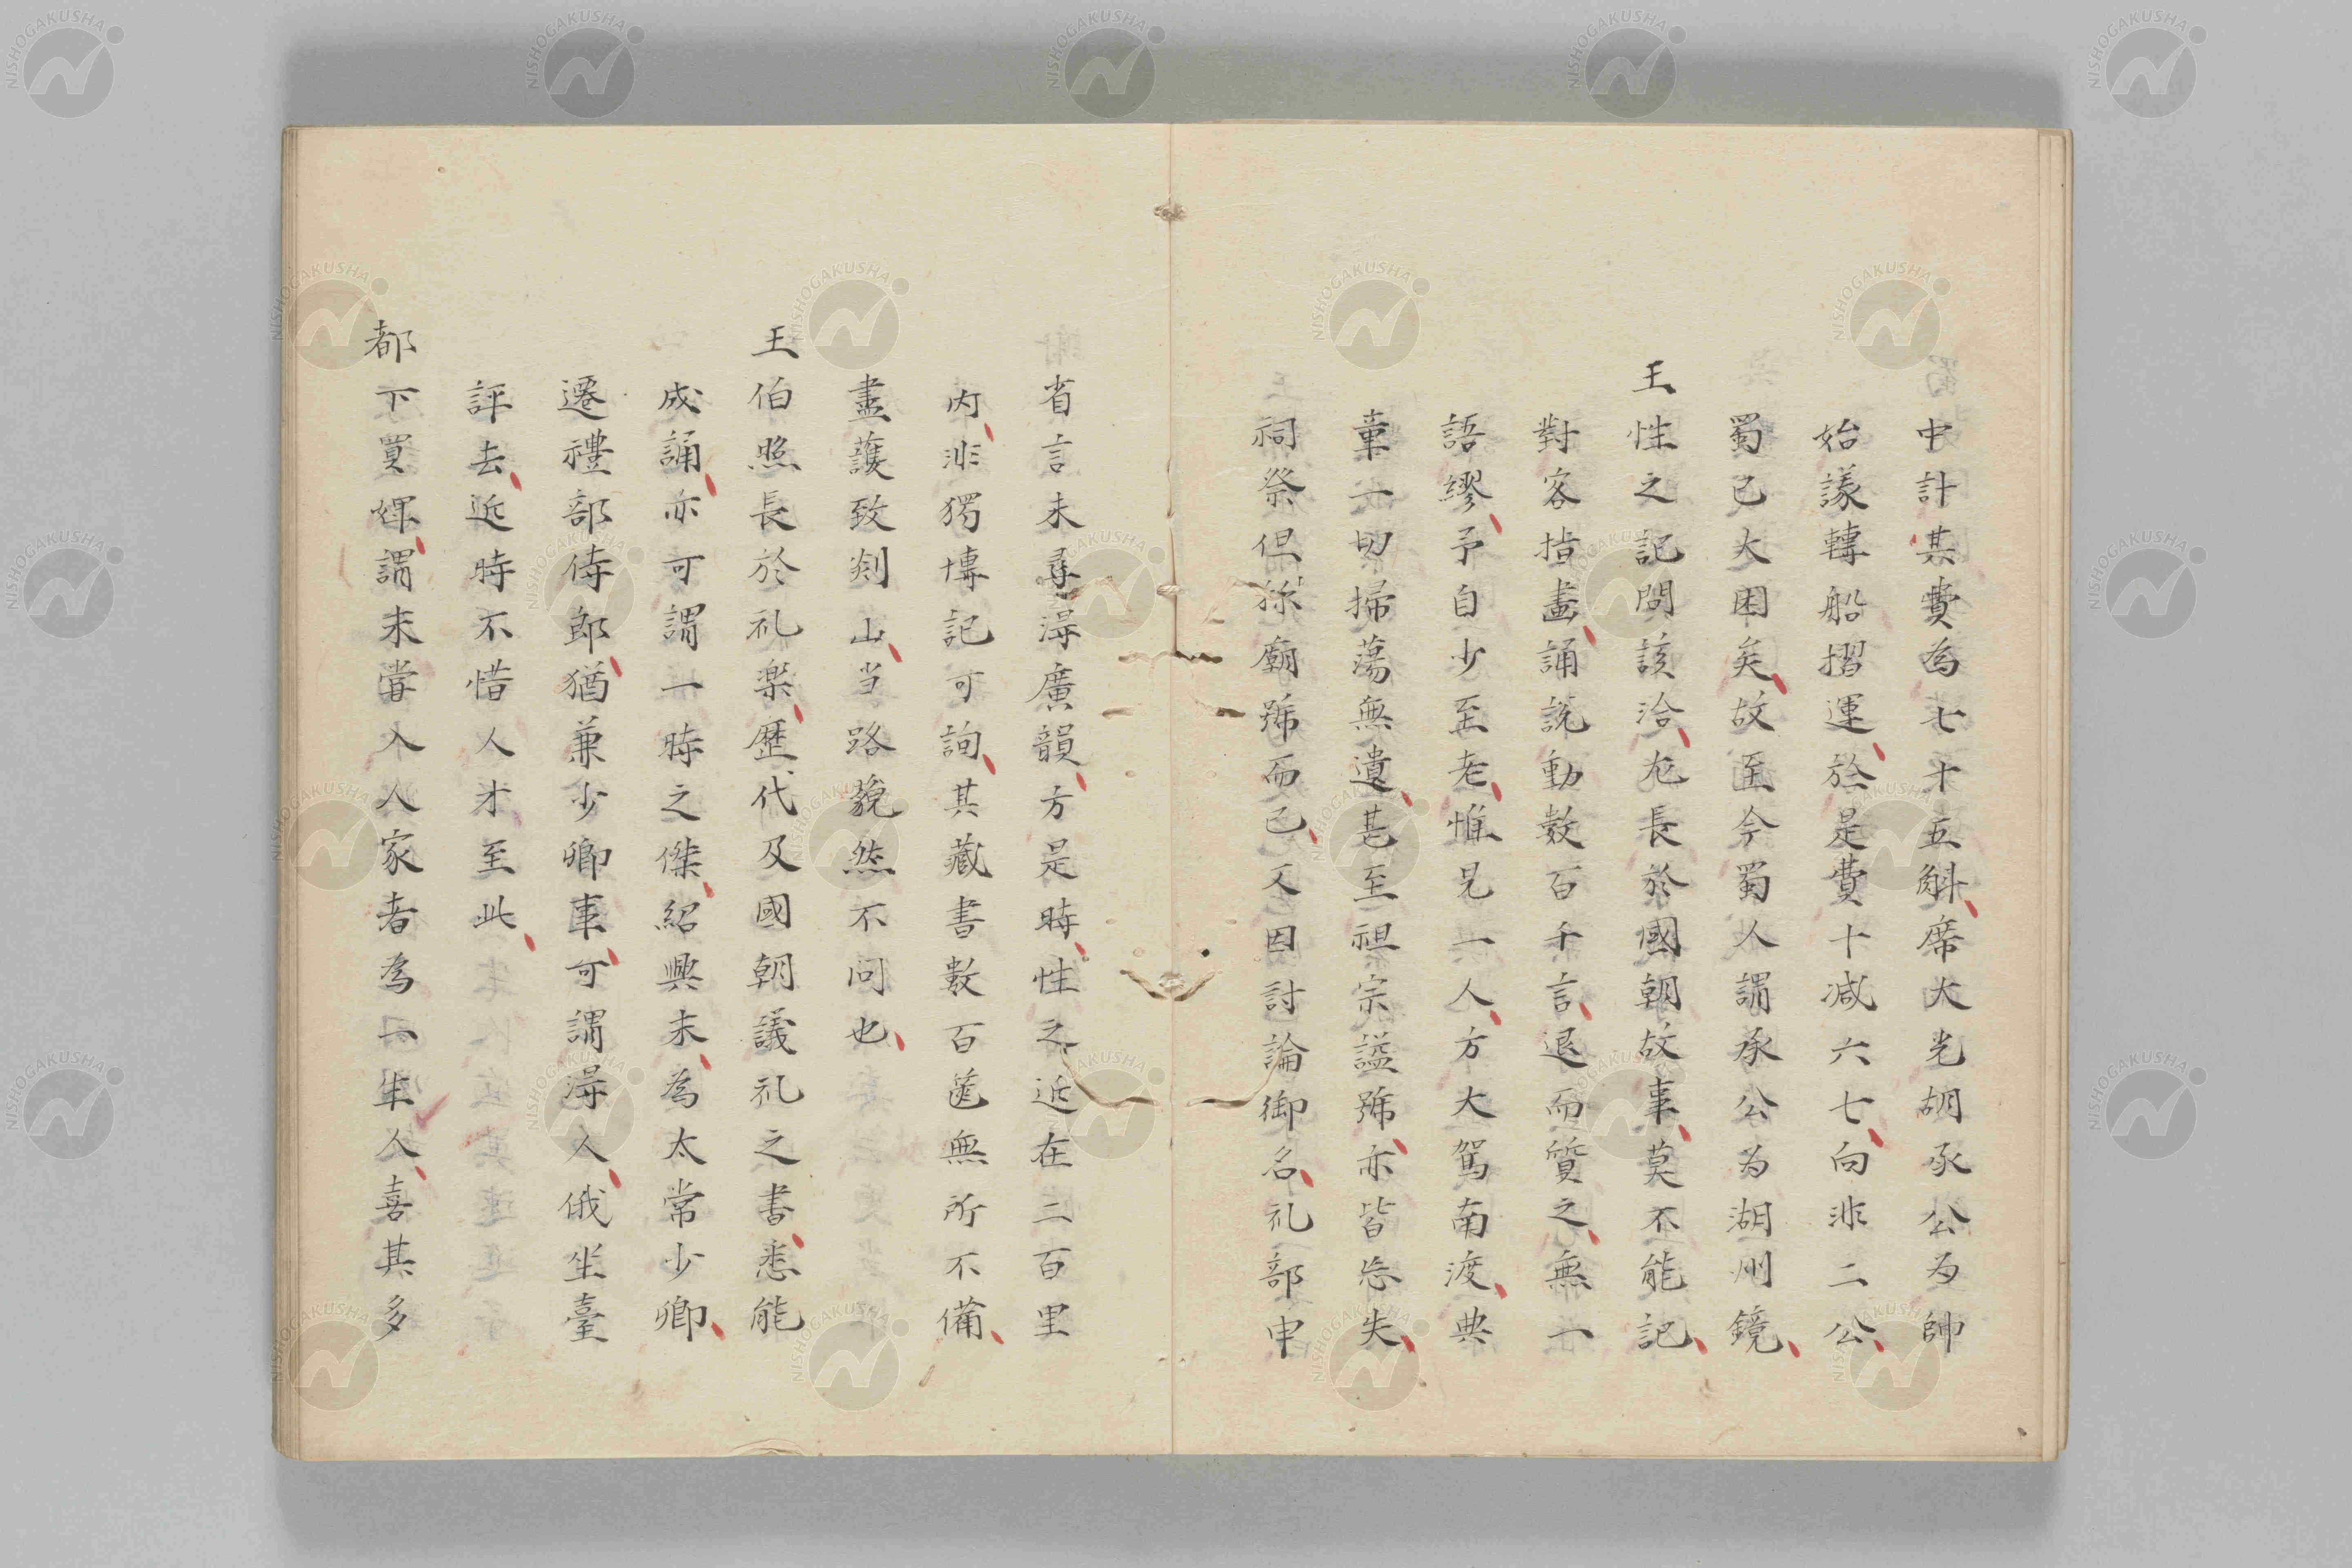 中計其費為七十五斛席大光胡承公为帥
始議轉船摺運於是費十减六七向非二公
蜀已大困矣故至今蜀人謂承公为湖州鏡
王性之記問該洽尤長於國朝故事莫不能記
對客指畫誦説動数百千言退而質之無一
語繆予自少至老惟見一人方大駕南渡典
章一切掃蕩無遺甚至祖宗諡號亦皆忘失
祠祭但称廟號而已又因討論御名礼部申
省言未尋得廣韻方是時性之近在二百里
内非獨博記可詢其藏書数百篋無所不備
盡護致剡山当路藐然不问也
王伯照長於礼楽歴代及國朝議礼之書悉能
成誦亦可謂一時之傑紹興末為太常少卿
遷禮部侍郎猶兼少卿事可謂得人俄坐臺
評去近時不惜人才至此
都下買婢謂未嘗入人家者為一生人喜其多
NISHOGAKUSHA